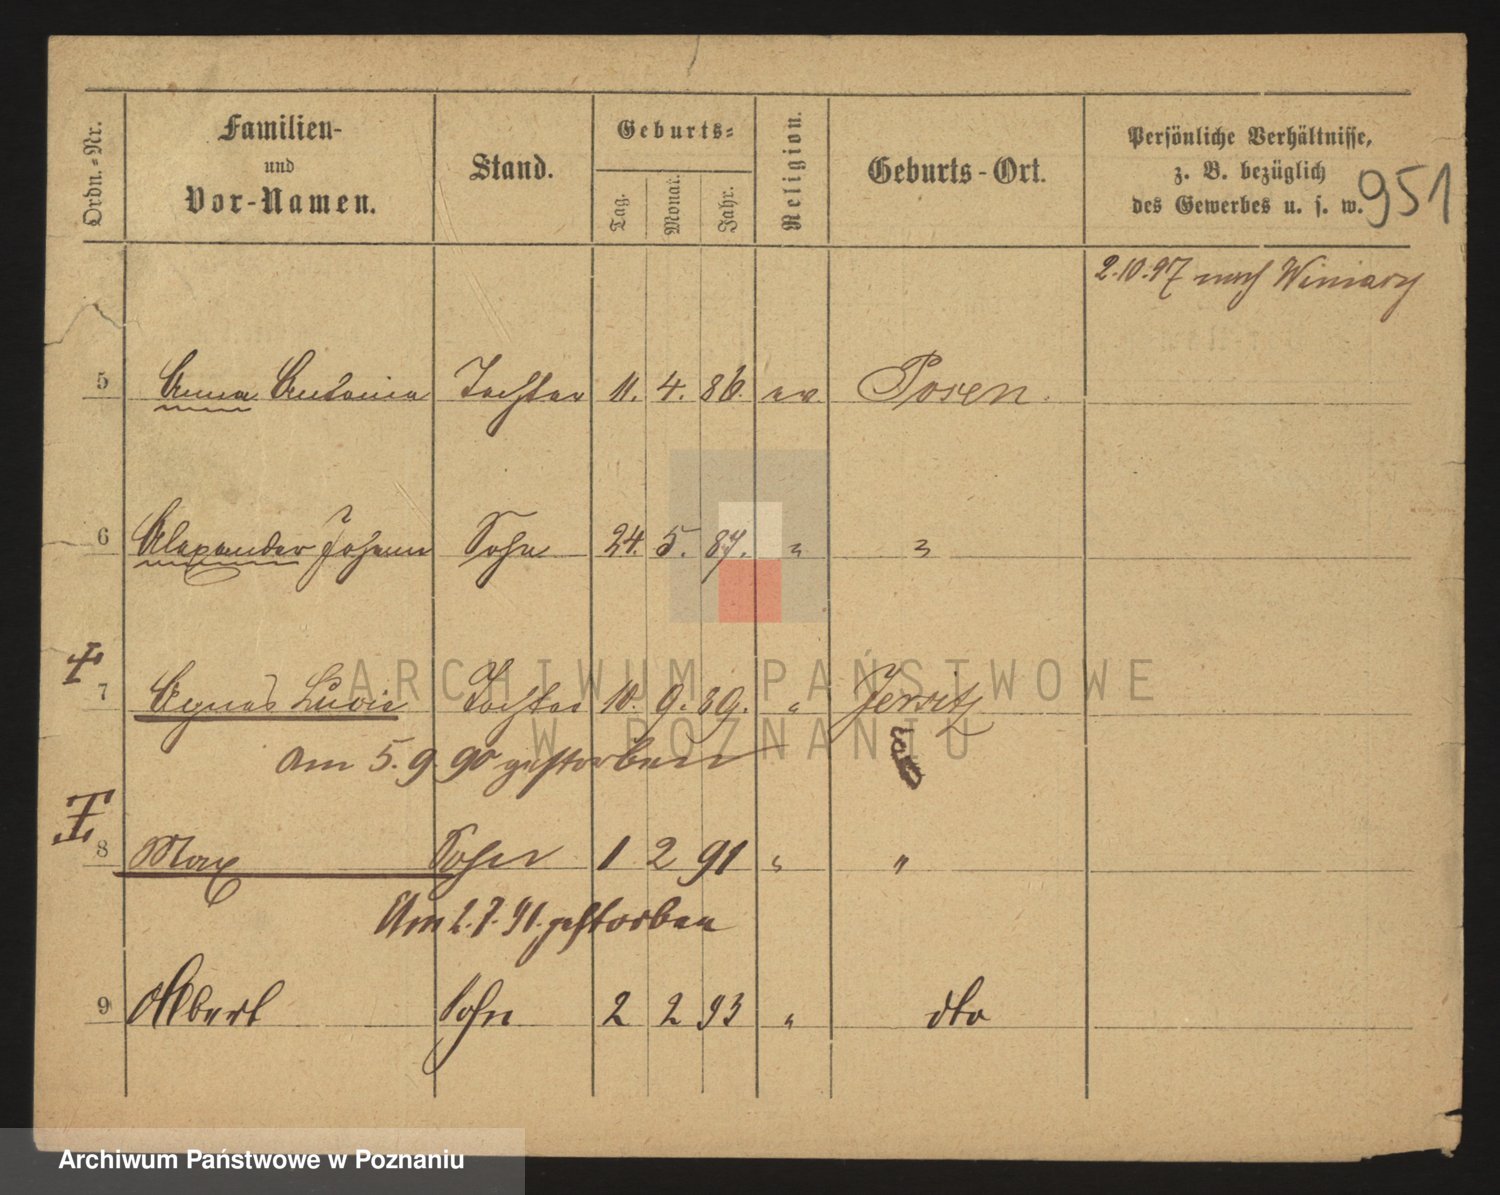 Ordn.-Nr.
Familien-
und
Vor-Namen.
Stand.
Geburts-
Tag.
Monat.
Jahr.
Religion.
Geburts-Ort.
Persönliche Verhältnisse,
z. B. bezüglich
des Gewerbes u. s. w.
951
2.10.97 nach Winiary
5 Anna Antonia Tochter 11. 4. 86. ev. Posen.
6 Alexander Johann Sohn 24. 5. 87. " "
7 Agnes Tochter 10. 9. 89. " Jersitz
am 5.9.90 gestorben
8 Max Sohn 1 2 91 " "
Am 2.7.91. gestorben
9 Albert Sohn 2 2 93 " dto
ARCHIWUM PAŃSTWOWE
W POZNANIU
Archiwum Państwowe w Poznaniu